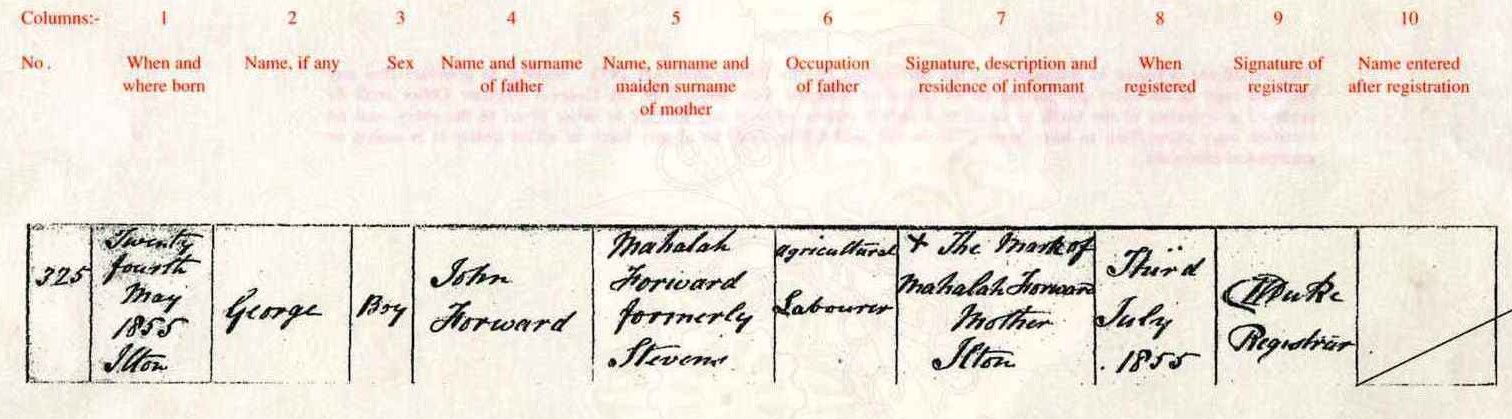 Columns:- 1 2 3 4 5 6 7 8 9 10
No. When and where born Name, if any Sex Name and surname of father Name, surname and maiden surname of mother Occupation of father Signature, description and residence of informant When registered Signature of registrar Name entered after registration
325
Twenty
fourth
May
1855
Ilton
George
Boy
John
Forward
Mahalah
Forward
formerly
Stevens
Agricultural
Labourer
X The Mark of
Mahalah Forward
Mother
Ilton
Third
July
1855
Duke
Registrar